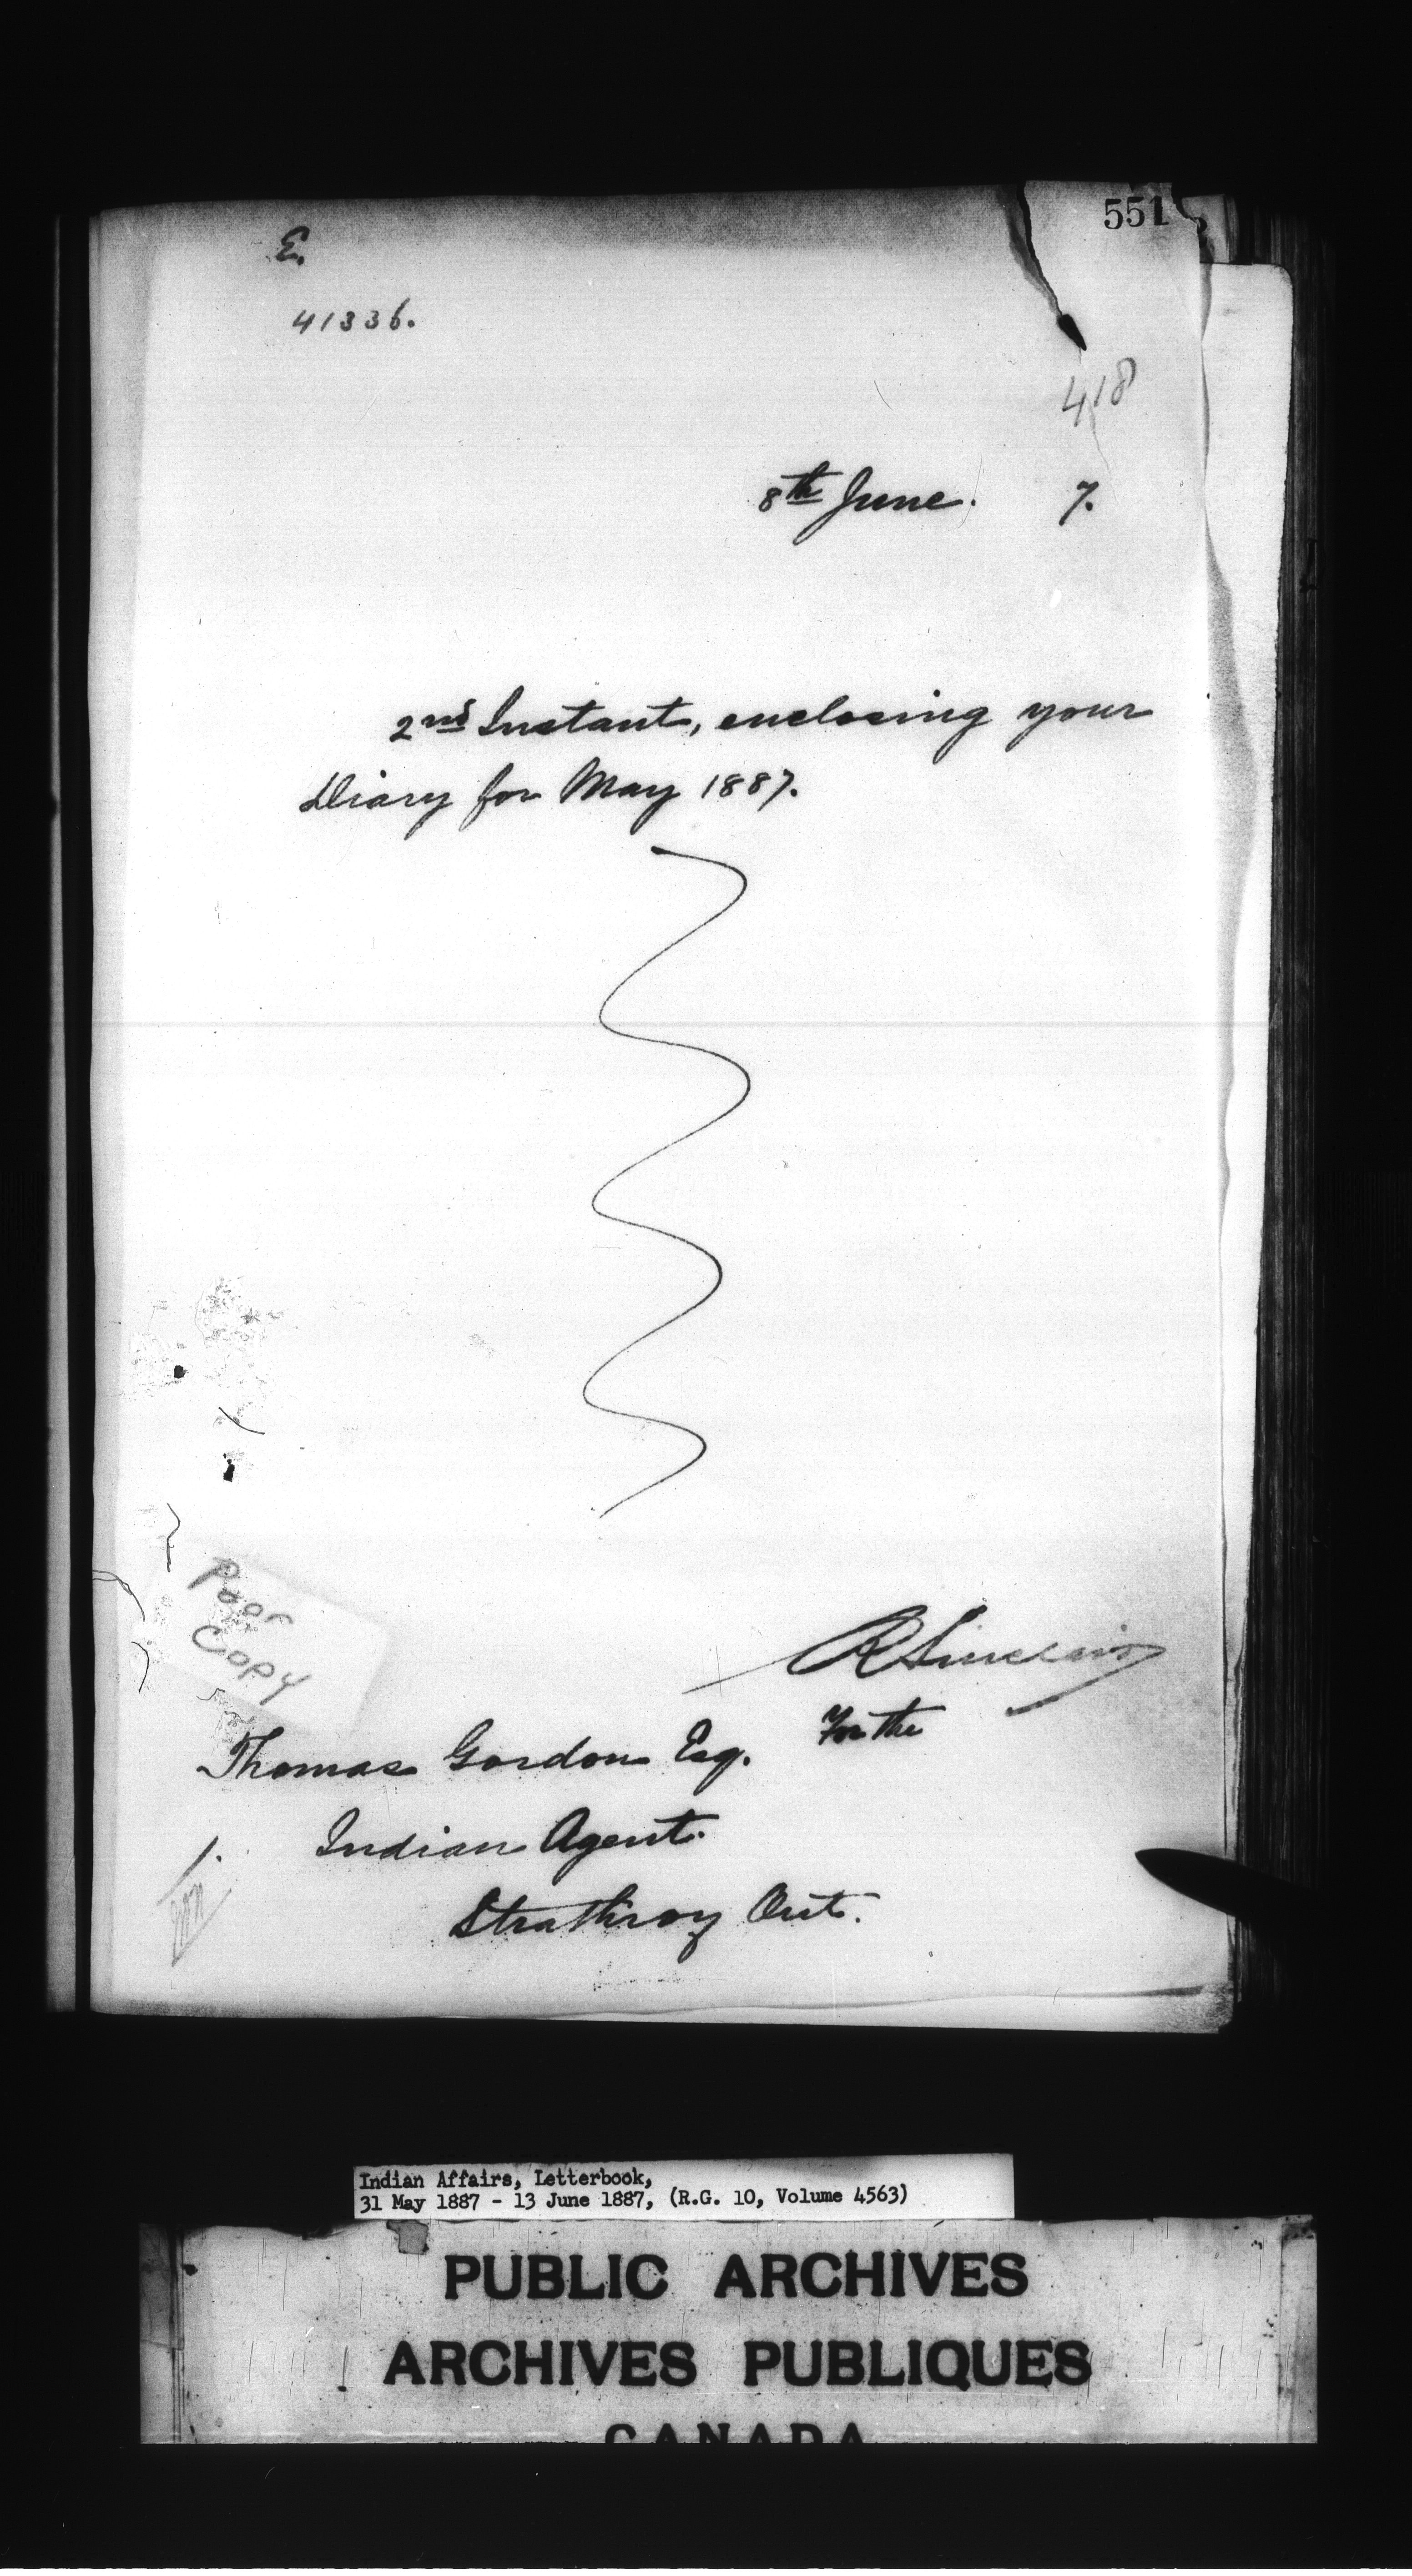 551
E.
41336.
418
8th June. 7.
2nd Instant, enclosing your
Diary for May 1887.
Poor
Copy
R Sinclair
For the
Thomas Gordon Esq.
1. Indian Agent.
Strathroy Ont.
Indian Affairs, Letterbook,
31 May 1887 - 13 June 1887, (R.G. 10, Volume 4563)
PUBLIC ARCHIVES
ARCHIVES PUBLIQUES
CANADA